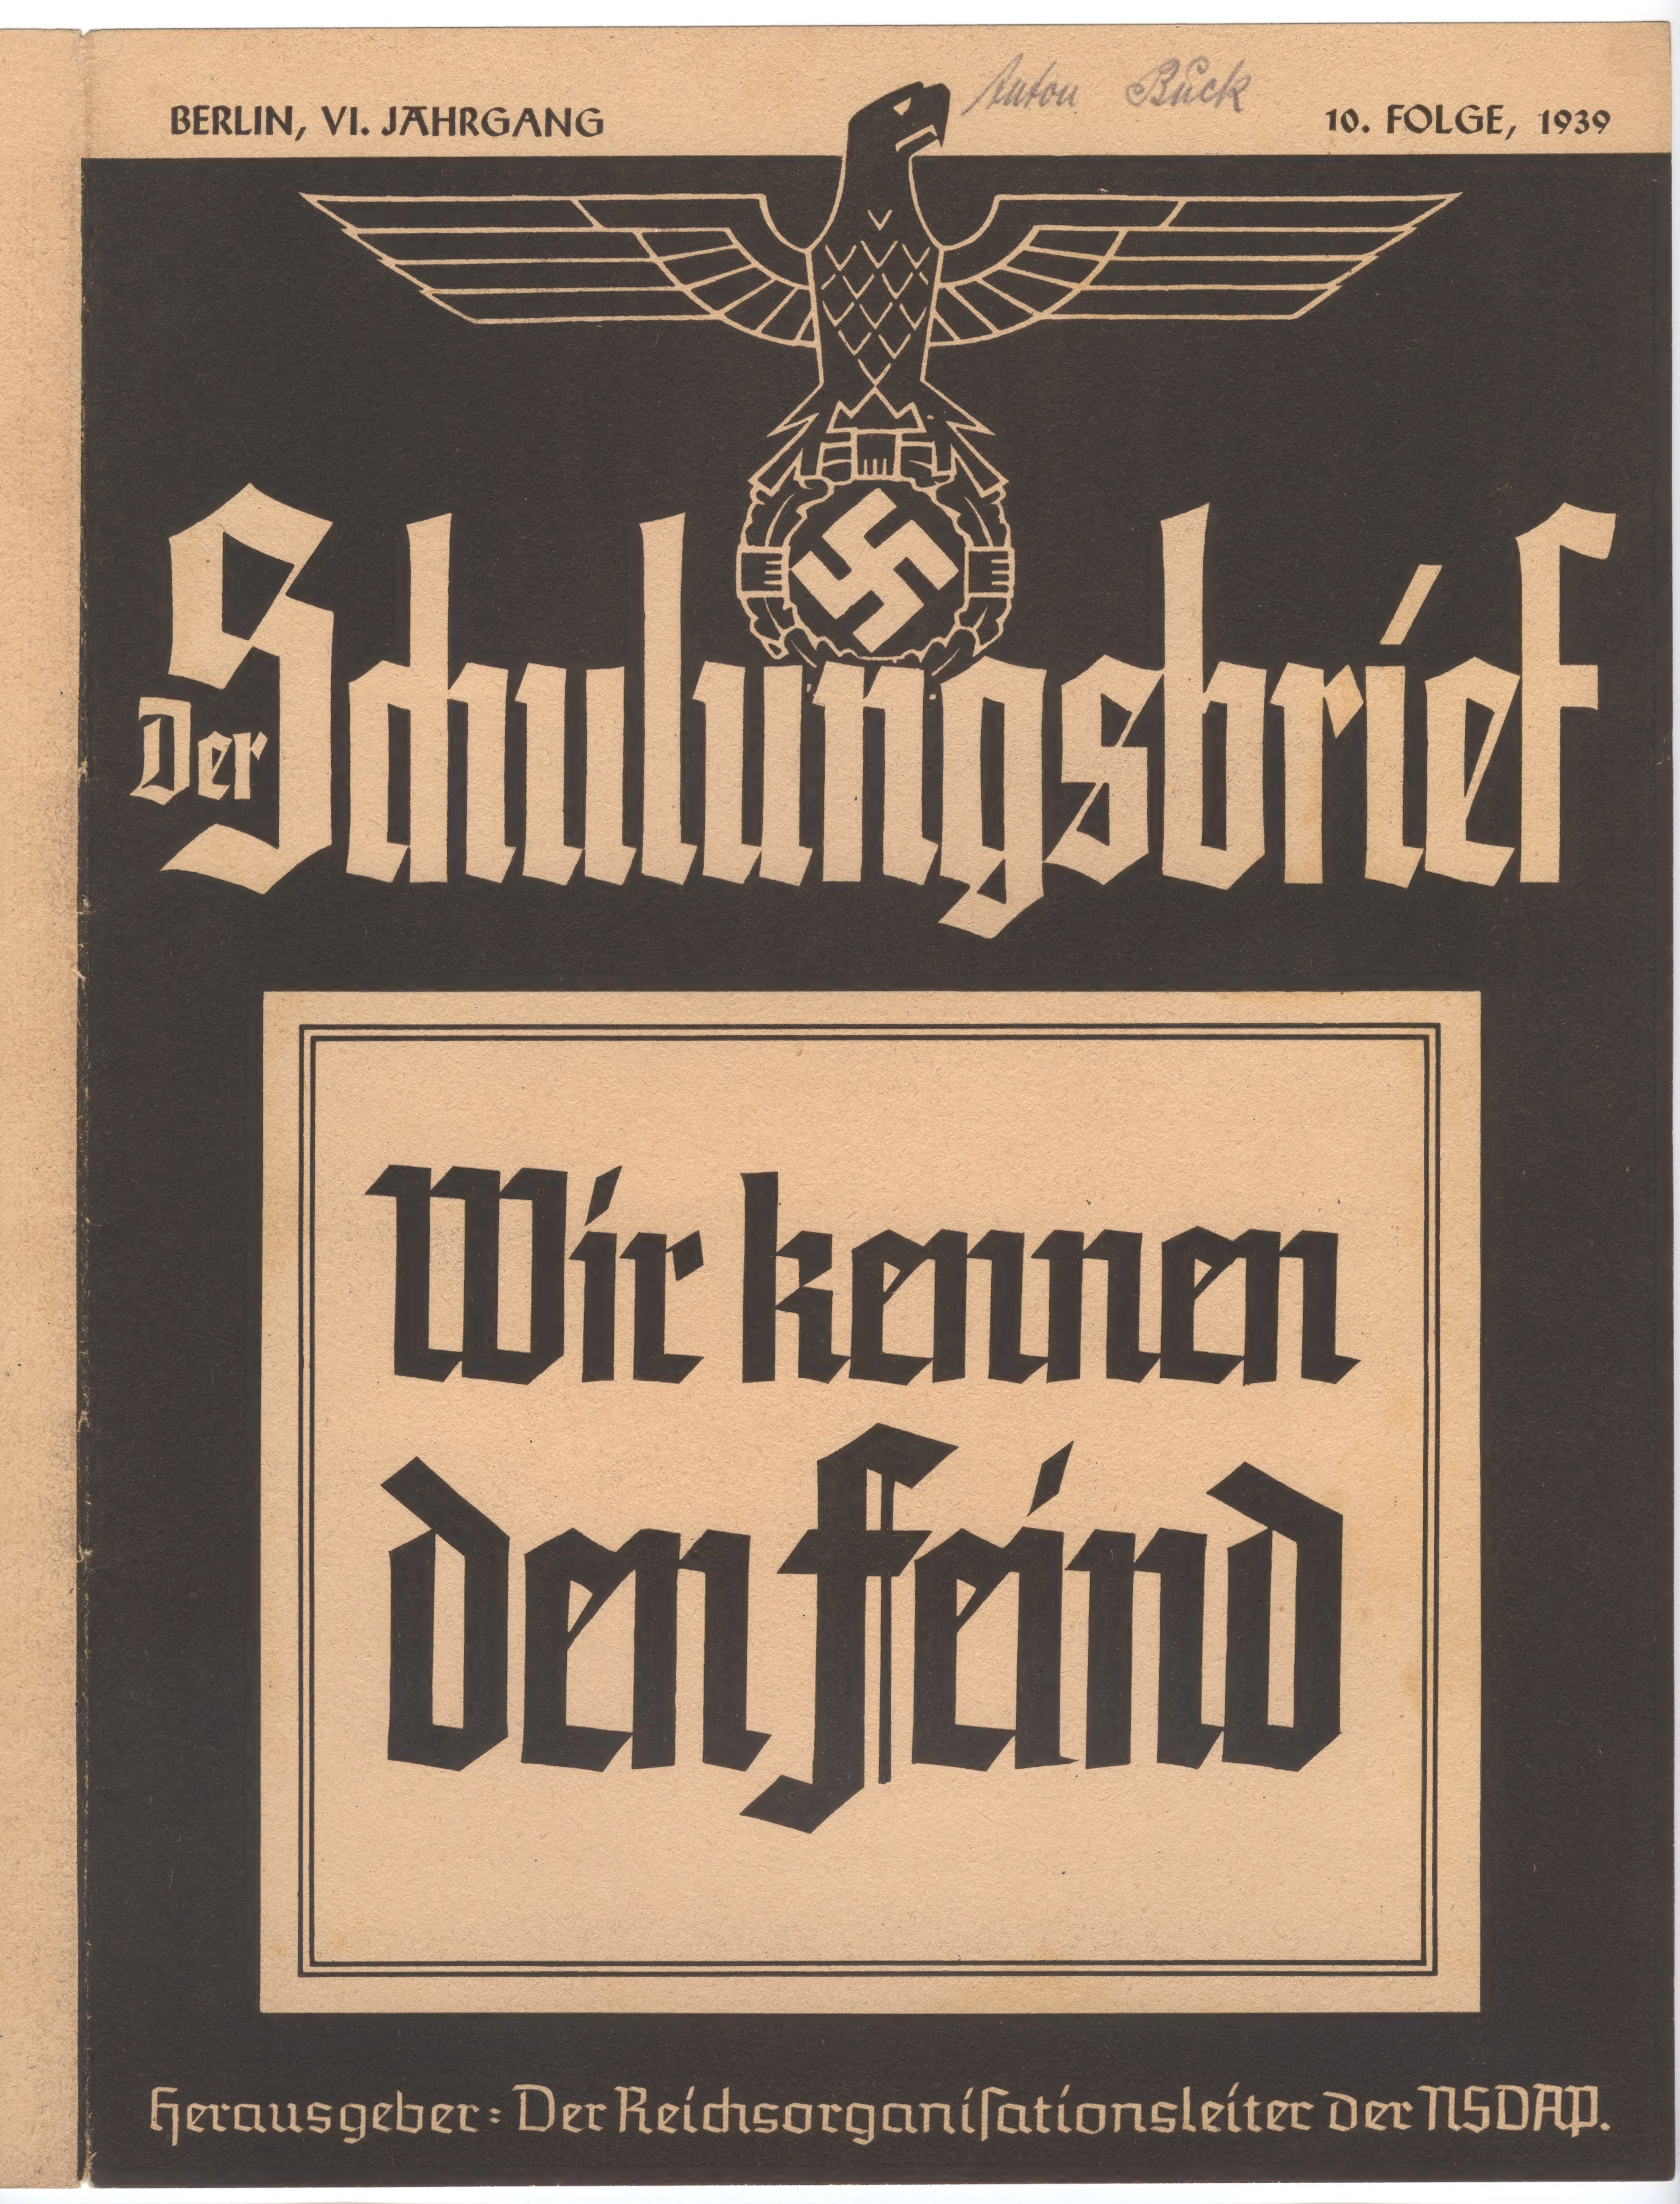 Anton Buck
BERLIN, VI. JAHRGANG
10. FOLGE, 1939
Der Schulungsbrief
Wir kennen
den Feind
Herausgeber: Der Reichsorganiſationsleiter der NSDAP.